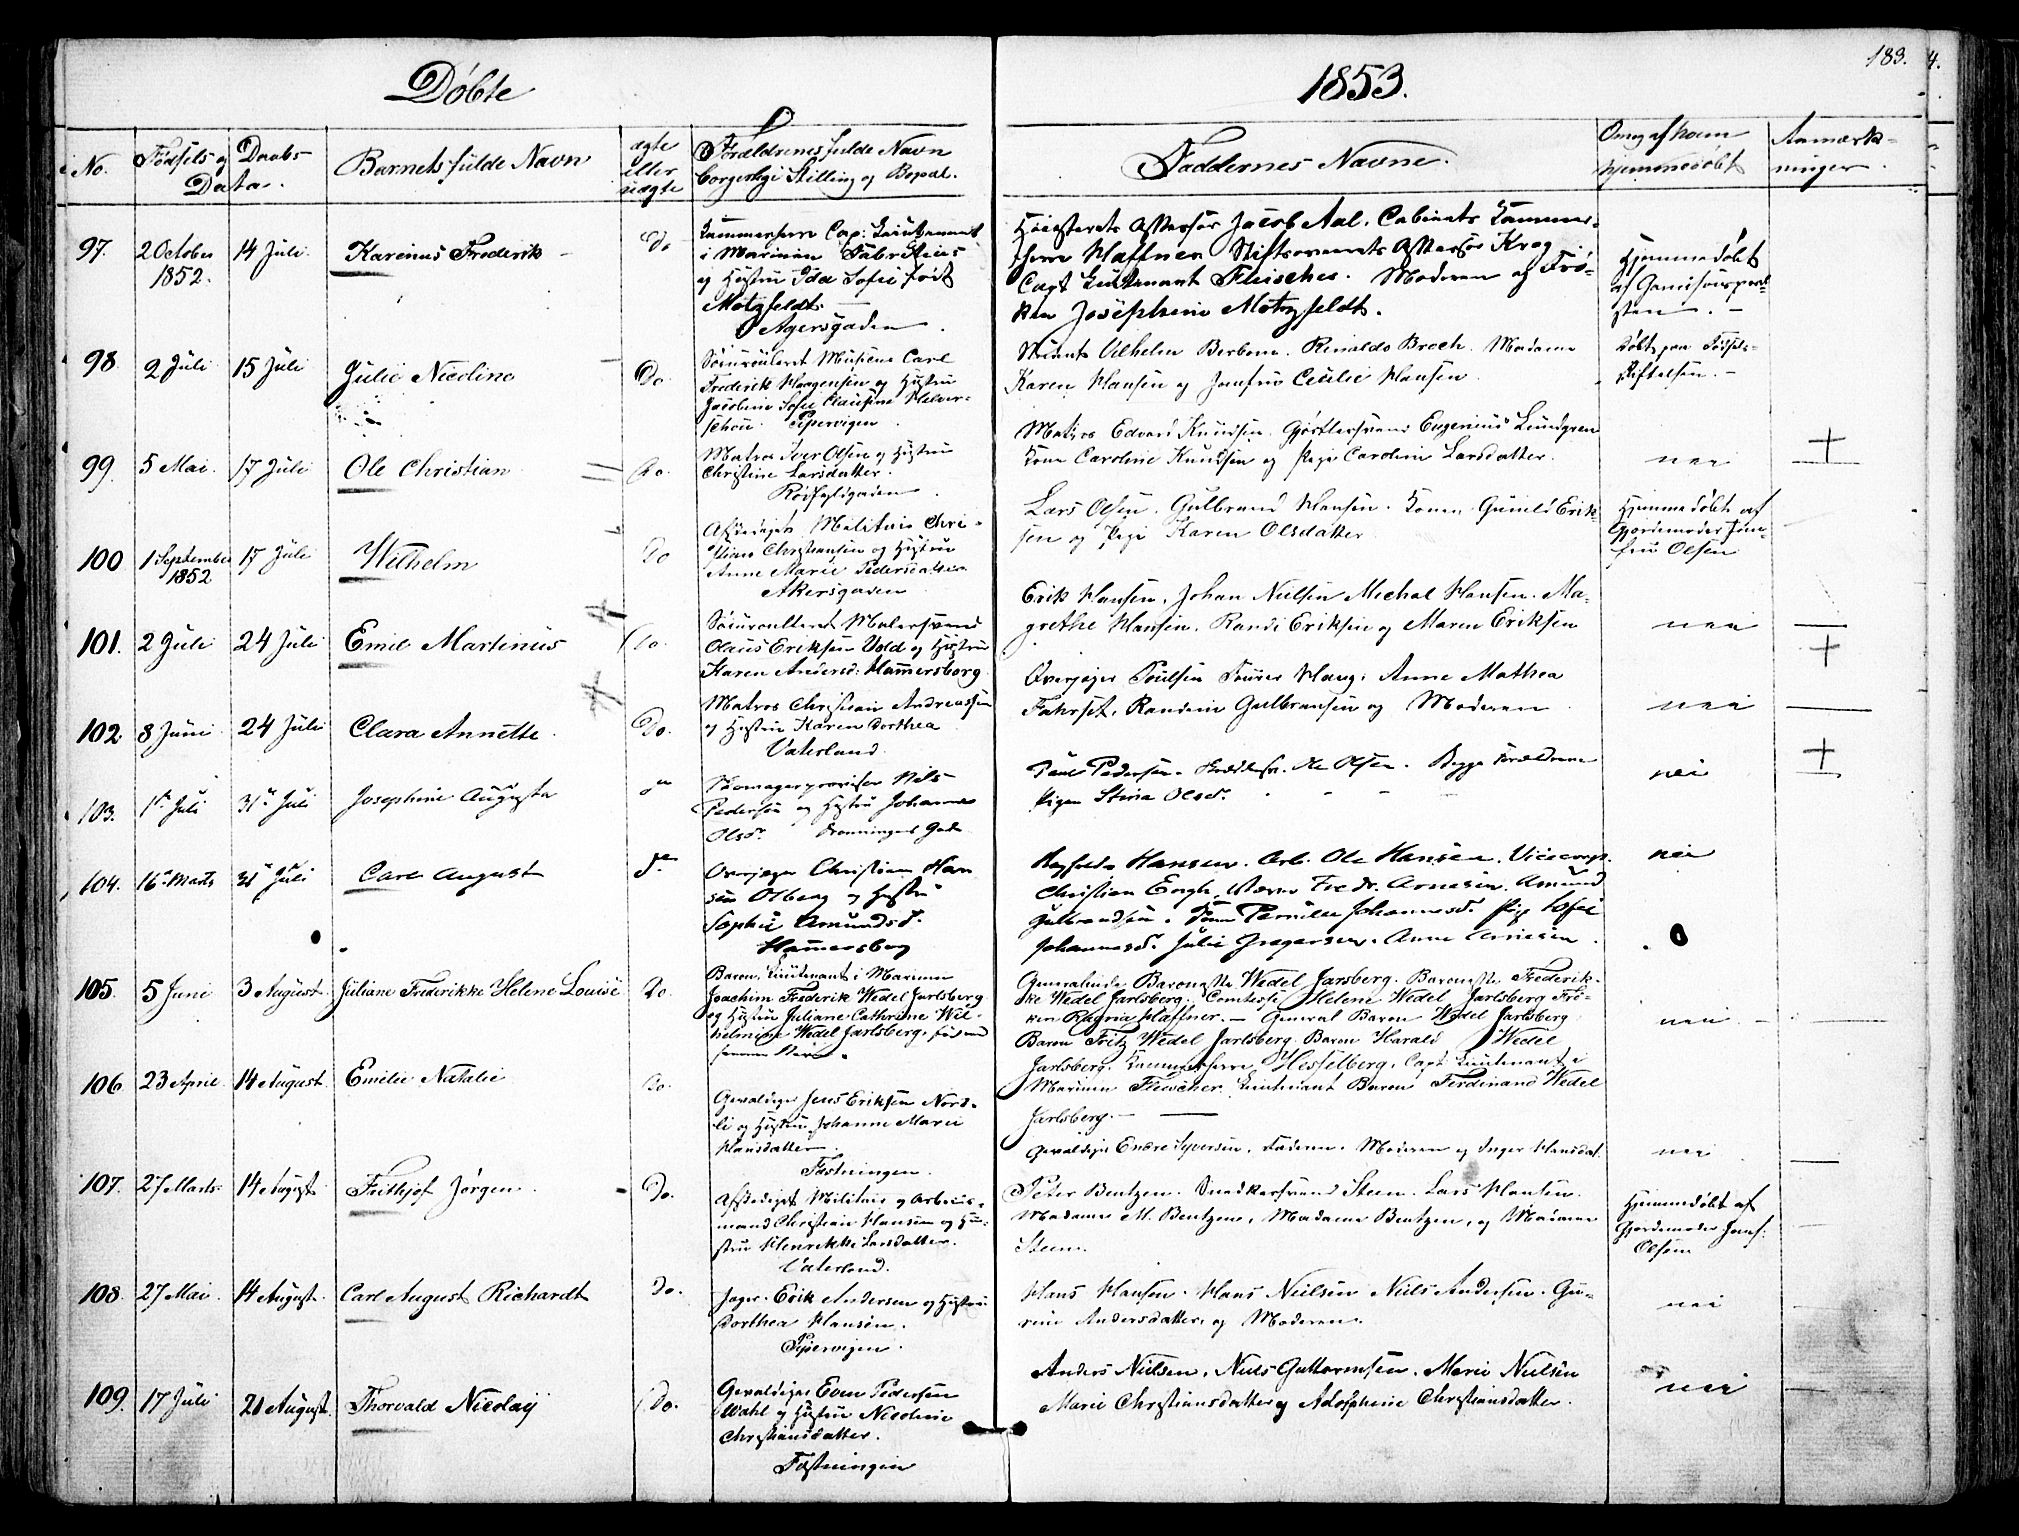 Døbte
1853.
183. 4.
No.
Fødsels og
Data.
Daabs
Barnets fulde Navn
ægte
eller
uægte
Forældrenes fulde Navn
borgerlige Stilling og Bopæl.
Faddernes Navne.
Om og af hvem
hjemmedøbt
Anmærk-
ninger.
97.
2 October
1852.
14 Juli
Karenus Frederik
Do
Kammerherre Cap: Lieutenant
i Marinen Fabritius
og Hustru Ida Sofie født
Motzfeldt
Agersgaden
Høiesterets Assessor Jacob Aal. Cabinets Kammer-
herre Haffner Stiftsoverrets Assessor Krog
Capt Lieutenant Fleischer. Moderen og Frø-
ken Josephine Motzfeldt.
Hjemmedøbt
af Garnisonspræ-
sten.
98
2 Juli
15 Juli
Julie Nicoline
Do
Musicus Carl
Frederik Haagensen og Hustru
Jacobine Sofie Clausine Helver-
schou Pipervigen
Vilhelm Berbom. Rinaldo Broch. Madame
Karen Hansen og Jomfru Cecilie Hansen
døbt paa Fødsels-
stiftelsen.
99.
5 Mai
17 Juli
Ole Christian
Do.
Matros Iver Olsen og Hustru
Christine Larsdatter.
Rødfyldgaden
Matros Edvard Knudsen. Gjørtlersvend Eugenius Lundgren
Kone Caroline Knudsen og Pige Caroline Larsdatter.
nei
+
100
1 September
1852
17 Juli
Wilhelm
Do
Afskediget Militair Chri-
stian Christiansen og Hustru
Anne Marie Pedersdatter
Akersgaden
Lars Olsen. Gulbrand Hansen. Konen Gunild Erik-
sen og Pige Karen Olsdatter
Hjemmedøbt af
Gjordemoder Jom-
fru Olsen
101.
2 Juli
24 Juli
Emil Martinus
Do.
Malersvend
Olaus Eriksen Vold og Hustru
Karen Andersd: Hammersborg
Erik Hansen. Johan Nielsen Michal Hansen. Ma-
grethe Hansen. Randi Eriksen og Maren Eriksen
nei
+
102
8 Juni
24 Juli
Clara Annette
Do.
Matros Christian Andreassen
og Hustru Karen Dorthea
Vaterland
Overjæger Poulsen Haug. Anne Mathea
Fahrset. Randine Gulbransen og Moderen
nei
+
103.
1st Juli
31te Juli
Josephine Augusta
Nils
Pedersen og Hustru Johanne
Olsd. Dronningens Gade
Paul Pedersen. Ole Olsen. Begge Forældrene
Pigen Stina Olsd.
nei
104.
16 Marts
31 Juli
Carl August
Overjæger Christian Han
sen Olberg og Hustru
Sophie Amundsd.
Hammersborg
Hansen. Arb. Ole Hansen. Vicecorp.
Christian Engh, Fredr. Arnesen. Amund
Gulbrandsen. Kone Pernille Johannesd. Pige Sofie
Johannesd. Julie Gregersen. Anne Arnesen.
nei
105.
5 Juni
3 August
Juliane Frederikke Helene Louise
Do.
Baron, Lieutenant i Marinen
Joachim Frederik Wedel Jarlsberg
og Hustru Juliane Cathrine Wil-
helmine Wedel Jarlsberg, født med
samme Navn
Generalinde Baronesse Wedel Jarlsberg. Baronesse Frederik-
ke Wedel Jarlsberg. Comtesse Helene Wedel Jarlsberg Frø-
ken Ragna Haffner. - General Baron Wedel Jarlsberg
Baron Fritz Wedel Jarlsberg. Baron Harald Wedel
Jarlsberg. Kammerherre Hesselberg. Capt. Lieutenant i
Marinen Fleischer. Lieutenant Baron Ferdinand Wedel
Jarlsberg.
nei
106
23 April
14 August
Emilie Natalie
Do.
Gevaldiger Jens Eriksen Nord-
li og Hustru Johanne Marie
Hansdatter
Fæstningen.
Gevaldiger Endre Syversen, Faderen. Moderen og Inger Hansdat.
nei
107.
27 Marts
14 August
Frithjof Jørgen
Do.
Afskediget Militair og Arbeids-
mand Christian Hansen og Hu-
stru Henrikke Larsdatter.
Vaterland.
Peter Bentzen. Snedkersvend Steen. Lars Hansen.
Madame M. Bentzen, Madame Bentzen, og Madame
Steen.
Hjemmedøbt af
Gjordemoder Jomf.
Olsen
108.
27 Mai
14 August
Carl August Richardt
Do.
Jæger Erik Andersen og Hustru
Dorthea Hansen.
Pipervigen
Hans Hansen. Hans Nielsen Niels Andersen. Gu-
rine Andersdatter, og Moderen.
nei
109.
17 Juli
21 August
Thorvald Nicolay
Do.
Gevaldiger Even Pedersen
Wahl og Hustru Nicoline
Christiansdatter.
Fæstningen
Anders Nielsen. Niels Guttormsen. Marie Nielsen
Marie Christiansdatter og Adolphine Christiansdatter.
nei